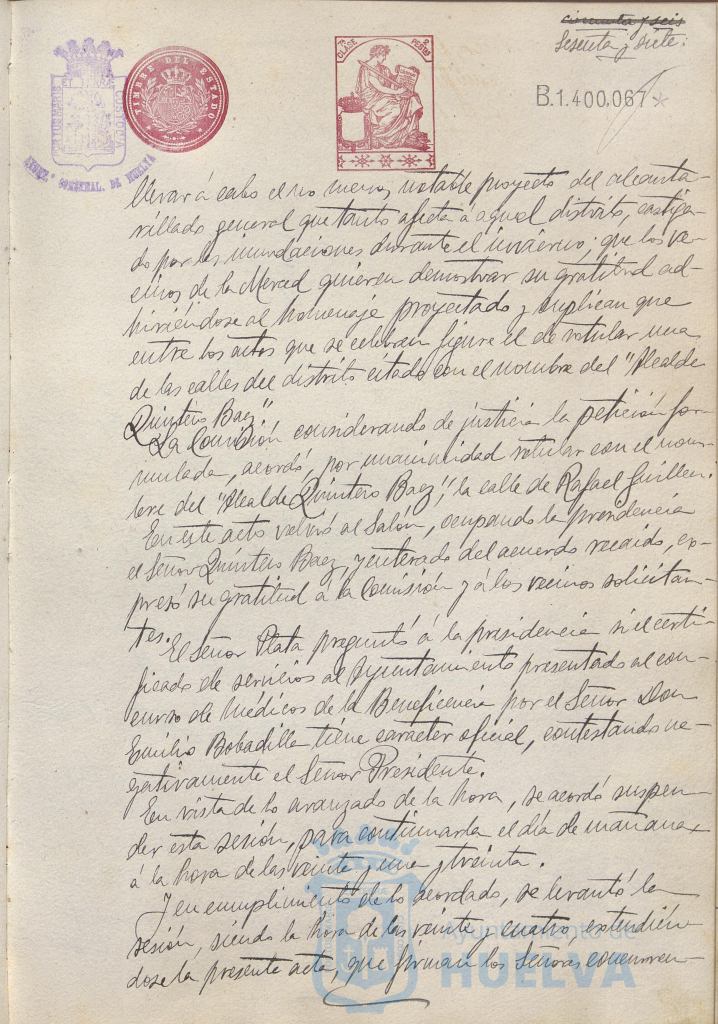 cincuenta y seis
Sesenta y siete.
TIMBRE DEL ESTADO
7ª CLASE
2 PESETAS
B.1.400.067*
HUELVA
llevar á cabo el no menos notable proyecto del alcanta-
rillado general que tanto afecta a aquel distrito, castiga-
do por las inundaciones durante el invierno; que los ve-
cinos de la Merced quieren demostrar su gratitud ad-
hiriéndose al homenaje proyectado y suplican que
entre los actos que se celebren figure el de rotular una
de las calles del distrito citado con el nombre del "Alcalde
Quintero Baez"
La Comisión considerando de justicia la petición for-
mulada, acordó, por unanimidad rotular con el nom-
bre del "Alcalde Quintero Baez", la calle de Rafael Guillen.
En este acto volvió al Salón, ocupando la presidencia
el Señor Quintero Baez, y enterado del acuerdo recaido, ex-
presó su gratitud a la Comisión y á los vecinos solicitan-
tes.
El Señor Plata preguntó á la presidencia si el certi-
ficado de servicios al Ayuntamiento presentado al con-
curso de Médicos de la Beneficencia por el Señor Don
Emilio Bobadilla tiene caracter oficial, contestando ne-
gativamente el Señor Presidente.
En vista de lo avanzado de la hora, se acordó suspen-
der esta sesión, para continuarla el día de mañana
á la hora de las veinte y una y treinta.
Y en cumplimiento de lo acordado, se levantó la
sesión, siendo la hora de las veinte y cuatro, extendién-
dose la presente acta, que firman los Señores concurren-
Ayuntamiento de
HUELVA